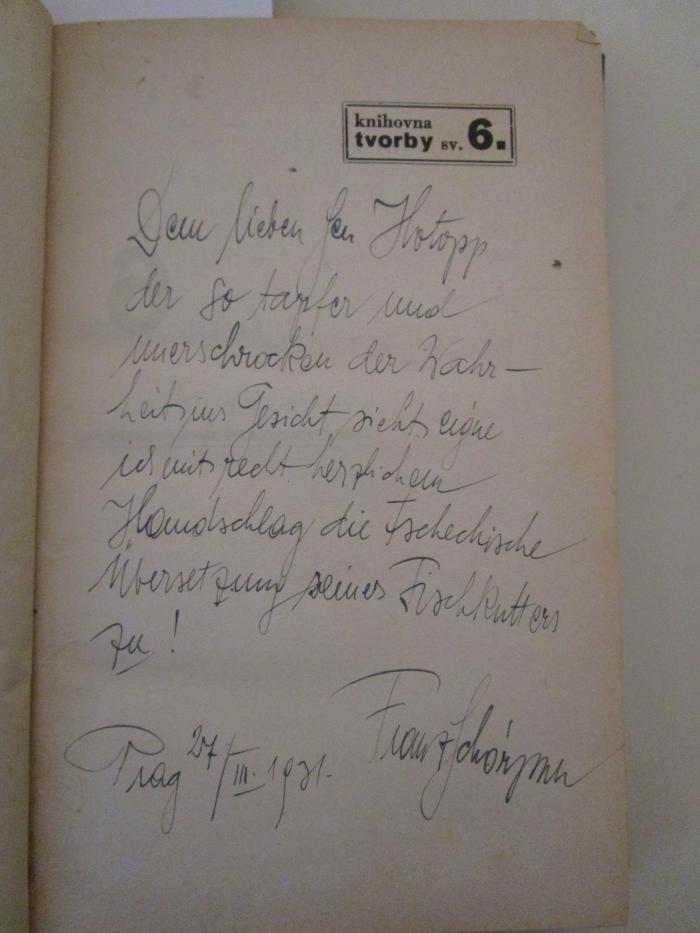 knihovna
tvorby sv. 6.
Dem lieben Gen Hotopp
der so tapfer und
unerschrocken der Wahr-
heit ins Gesicht sieht, eigne
ich mit recht herzlichem
Handschlag die tschechische
Übersetzung seines Fischkutters
zu!
Prag 27/III. 1931.
Franz